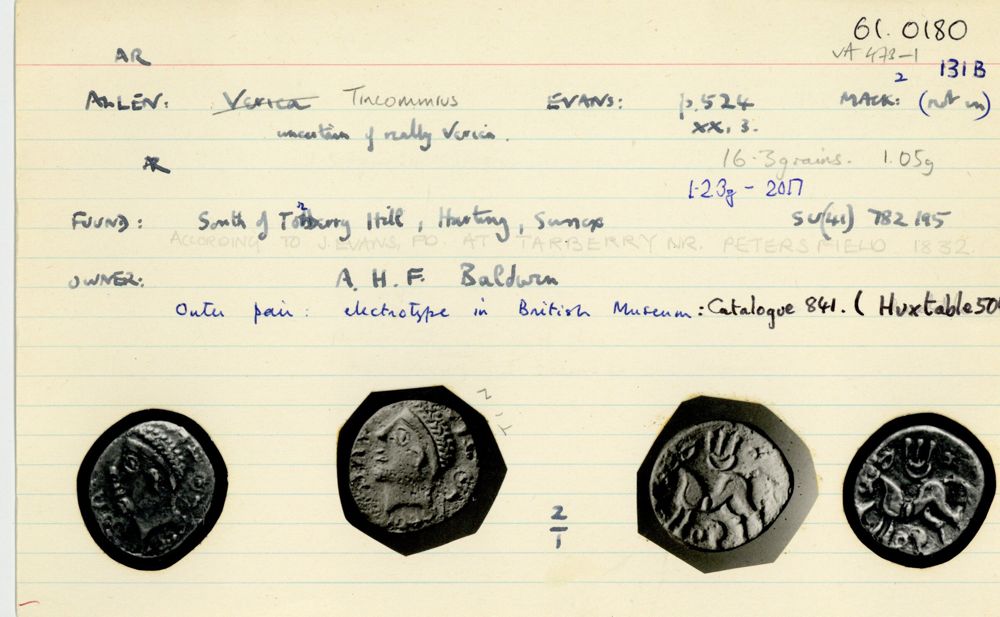 61.0180
AR VA 473-1
2 131B
ALLEN: Verica Tincommius EVANS: p.524 MACK: (not in)
uncertain if really Verica. XX, 3.
AR 16.3 grains. 1.05g
1.23g - 2017
FOUND: South of Torberry Hill, Harting, Sussex SU(41) 782 195
ACCORDING TO J. EVANS, FD. AT TARBERRY NR. PETERSFIELD 1832.
OWNER: A. H. F. Baldwin
Outer pair: electrotype in British Museum: Catalogue 841. (Huxtable 50
2
1